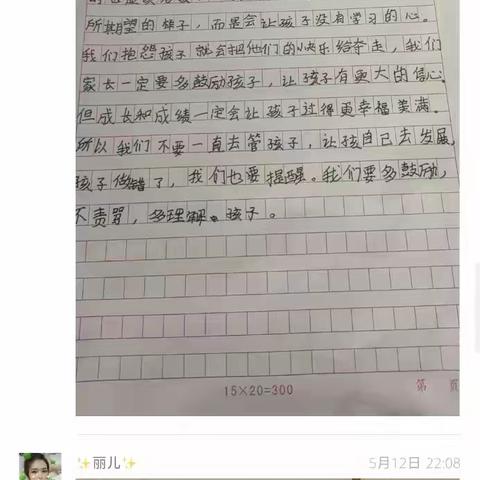 所期望的样子，而是会让孩子没有学习的心。
我们抱怨孩子就会把他们的快乐给夺走，我们
家长一定要多鼓励孩子，让孩子有更大的信心。
但成长和成绩一定会让孩子过得更幸福美满。
所以我们不要一直去管孩子，让孩自己去发展，
孩子做错了，我们也要提醒。我们要多鼓励，
不责骂，多理解。孩子。
15×20=300
第 页
✨丽儿✨
5月12日 22:08